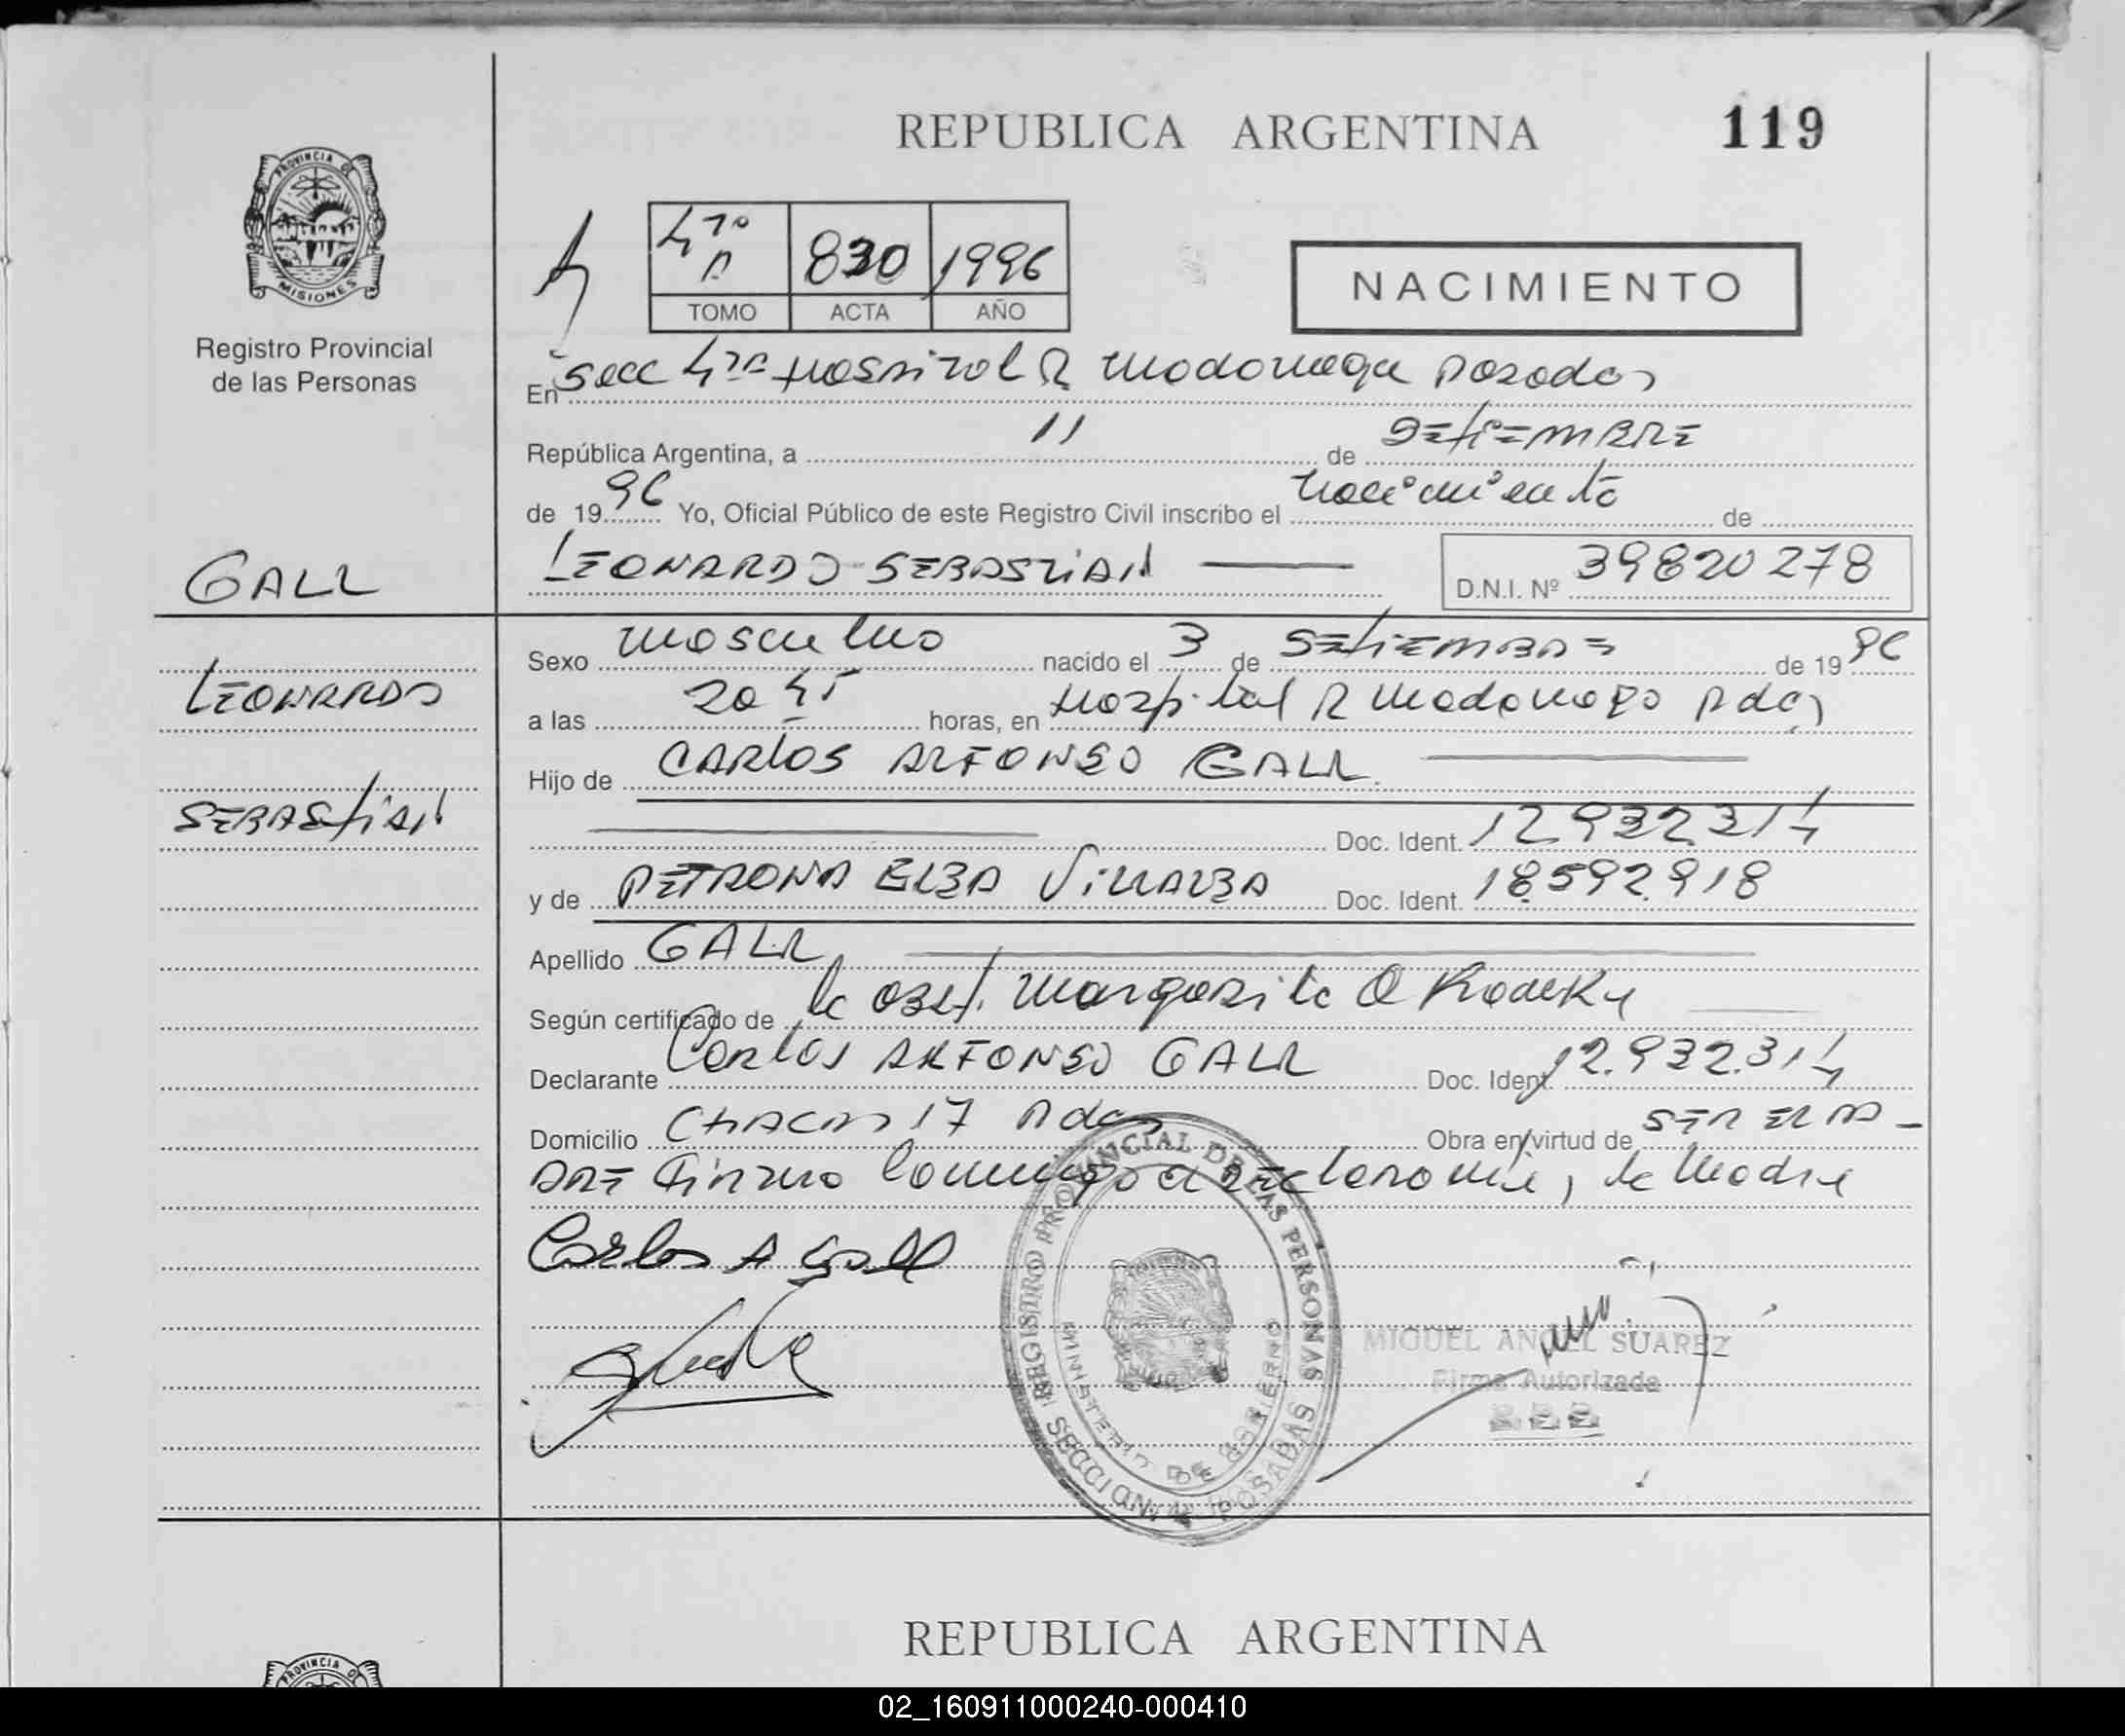 REPUBLICA ARGENTINA
119
PROVINCIA DE
MISIONES
Registro Provincial
de las Personas
4to A 830 1996
TOMO ACTA AÑO
NACIMIENTO
En Secc 4ta Hospital R Madariaga Posadas
República Argentina, a 11 de SETIEMBRE
de 1996 Yo, Oficial Público de este Registro Civil inscribo el nacimiento de
GALL
LEONARDO SEBASTIAN
D.N.I. Nº 39820278
LEONARDO
SEBASTIAN
Sexo masculino nacido el 3 de SETIEMBRE de 1996
a las 20 45 horas, en Hospital R Madariaga Pdas
Hijo de CARLOS ALFONSO GALL
Doc. Ident. 12932314
y de PETRONA ELBA VILLALBA Doc. Ident. 18.592.918
Apellido GALL
Según certificado de la Obst. Margarita O
Declarante Carlos ALFONSO GALL Doc. Ident. 12.932.314
Domicilio CHACRA 17 Pdas Obra en virtud de SER EL PA-
DRE Firma conmigo la madre
Carlos A Gall
REGISTRO PROVINCIAL DE LAS PERSONAS
MINISTERIO DE GOBIERNO
SECCION 4ª POSADAS
MIGUEL ANGEL SUAREZ
Firma Autorizada
REPUBLICA ARGENTINA
PROVINCIA DE
02_160911000240-000410